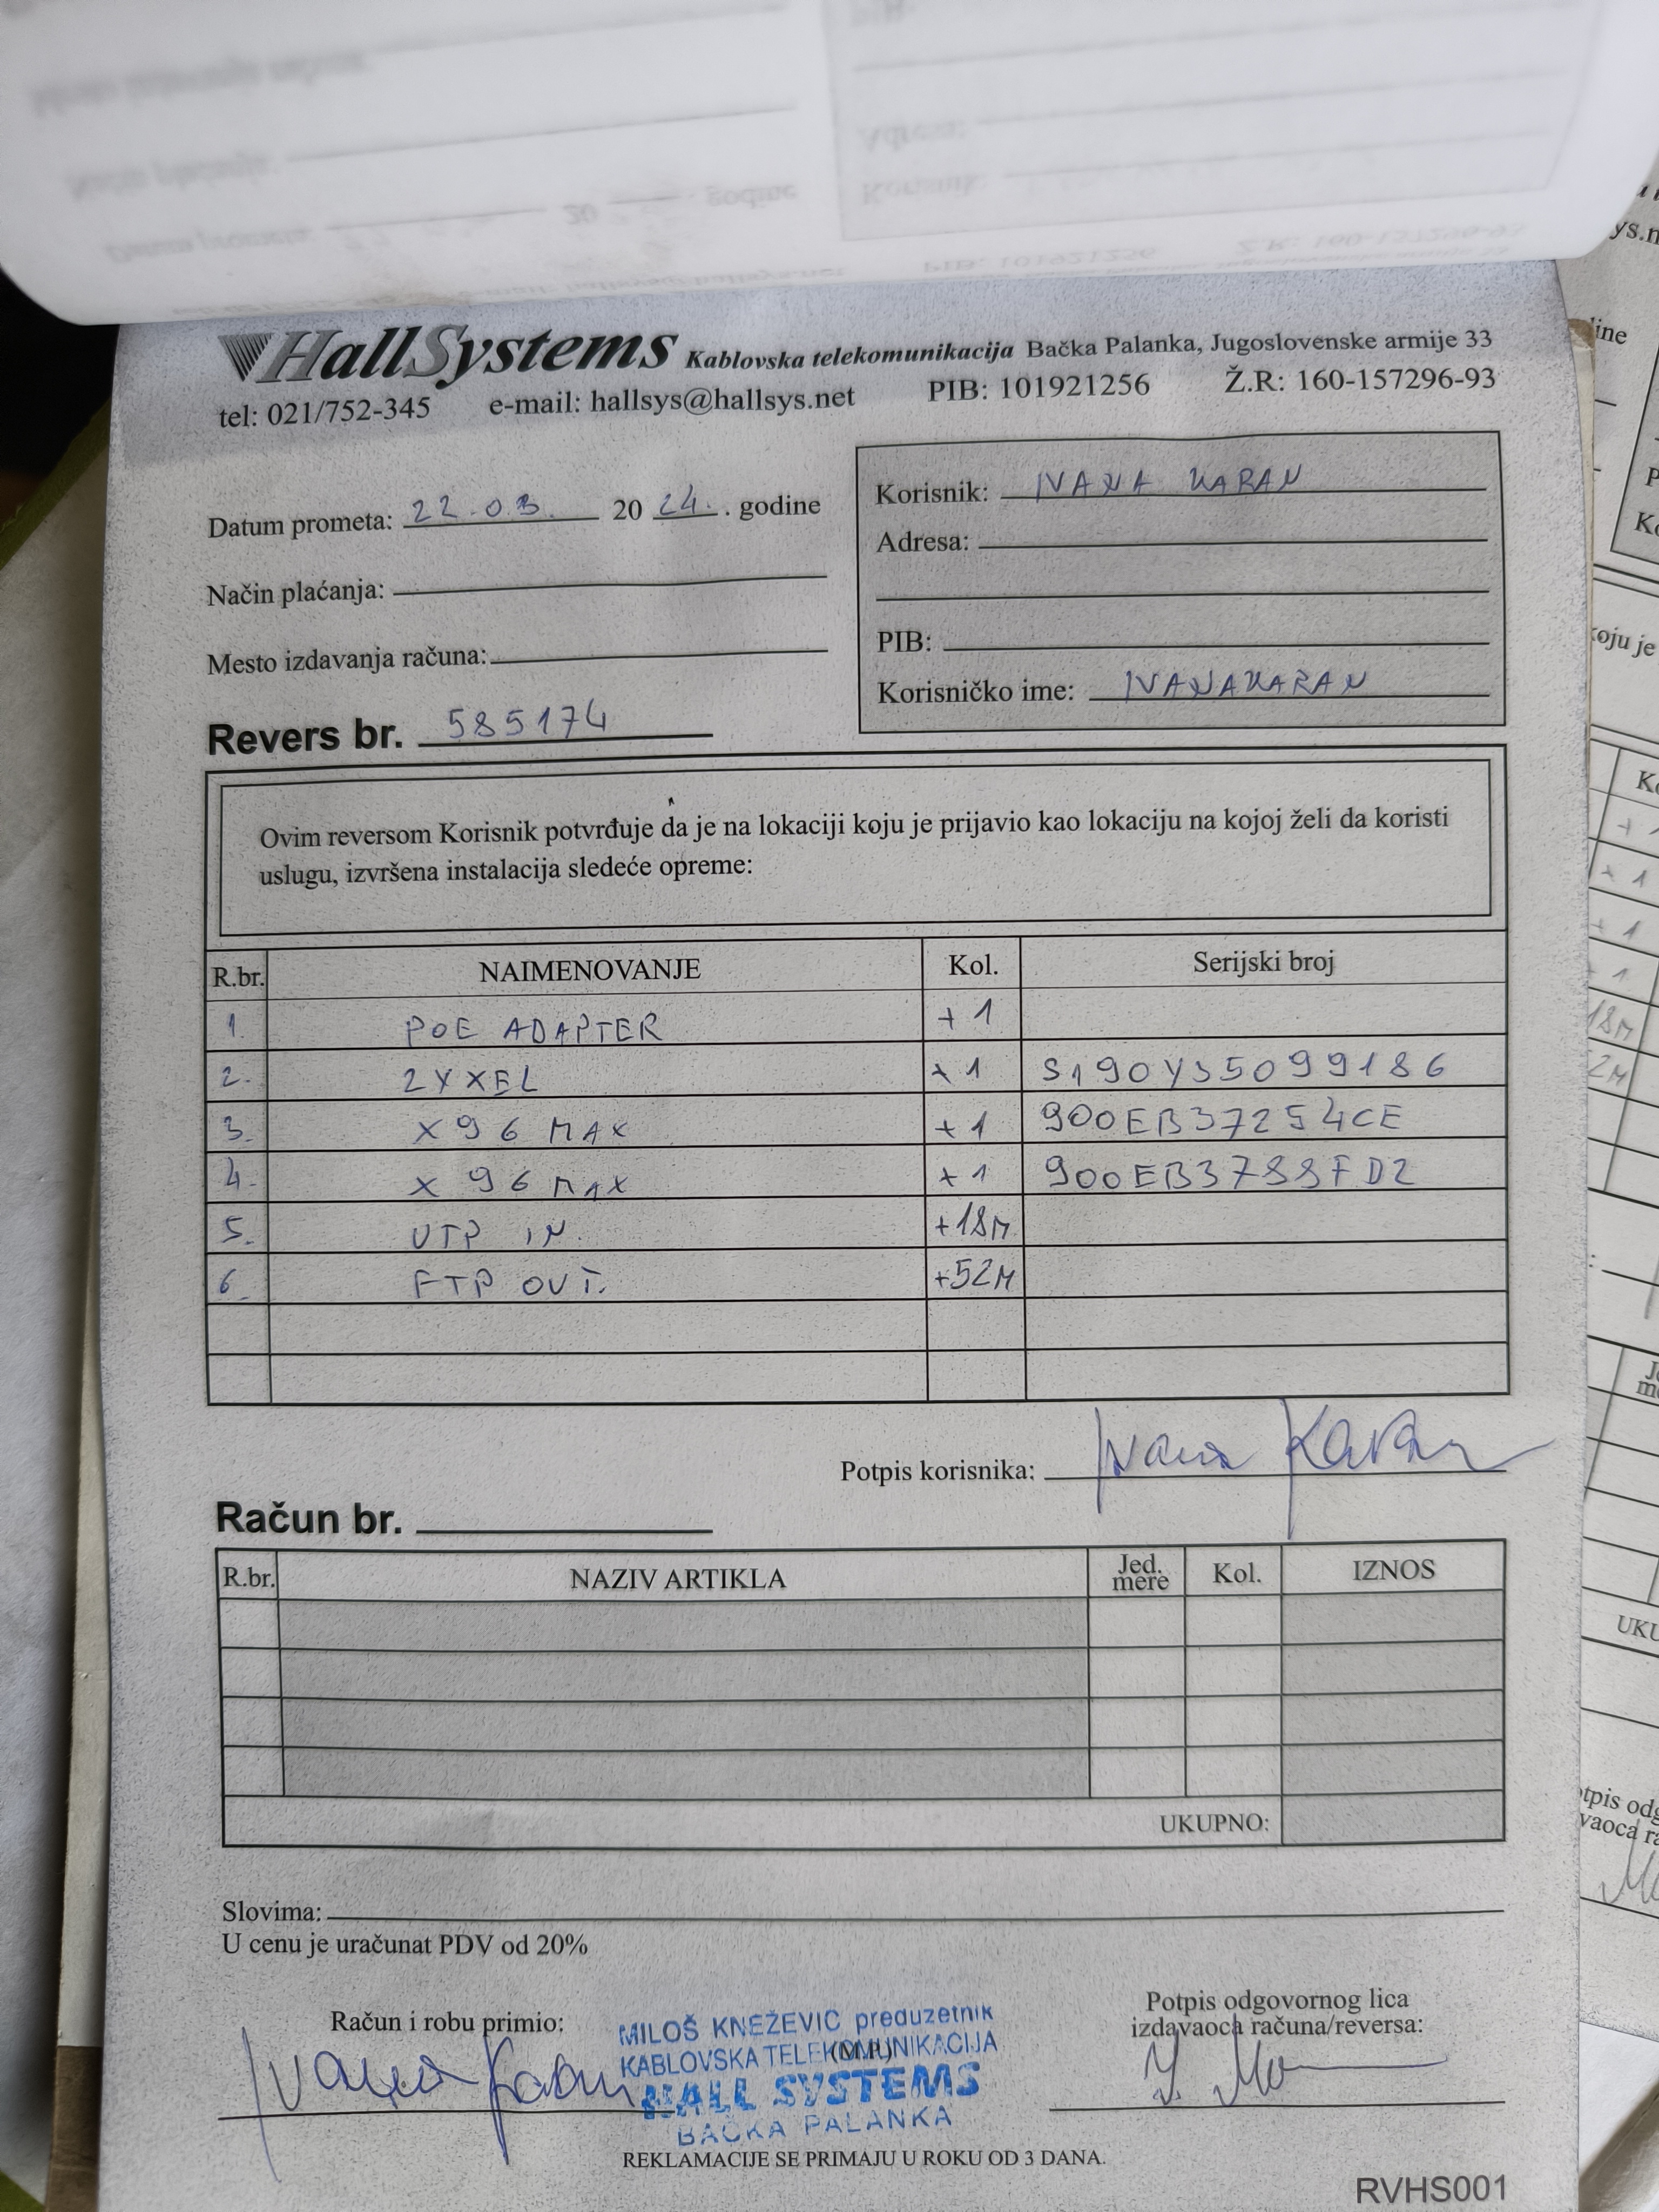 HallSystems Kablovska telekomunikacija Bačka Palanka, Jugoslovenske armije 33
tel: 021/752-345 e-mail: hallsys@hallsys.net PIB: 101921256 Ž.R: 160-157296-93
Datum prometa: 22.03. 20 24. . godine
Način plaćanja:
Mesto izdavanja računa:
Korisnik: IVANA KARAN
Adresa:
PIB:
Korisničko ime: IVANAKARAN
Revers br. 585174
Ovim reversom Korisnik potvrđuje da je na lokaciji koju je prijavio kao lokaciju na kojoj želi da koristi
uslugu, izvršena instalacija sledeće opreme:
R.br. NAIMENOVANJE Kol. Serijski broj
1 POE ADAPTER +1
2. ZYXXEL +1 S190Y35099186
3. X96 MAX +1 900EB37254CE
4. X96 MAX +1 900EB3788FD2
5. UTP IN. +18M
6. FTP OUT. +52M
Potpis korisnika: Ivana Karan
Račun br.
R.br. NAZIV ARTIKLA Jed. mere Kol. IZNOS
UKUPNO:
Slovima:
U cenu je uračunat PDV od 20%
Račun i robu primio: Ivana Karan
MILOŠ KNEŽEVIĆ preduzetnik
KABLOVSKA TELEKOMUNIKACIJA
(M.P.)
HALL SYSTEMS
BAČKA PALANKA
Potpis odgovornog lica
izdavaoca računa/reversa:
REKLAMACIJE SE PRIMAJU U ROKU OD 3 DANA.
RVHS001